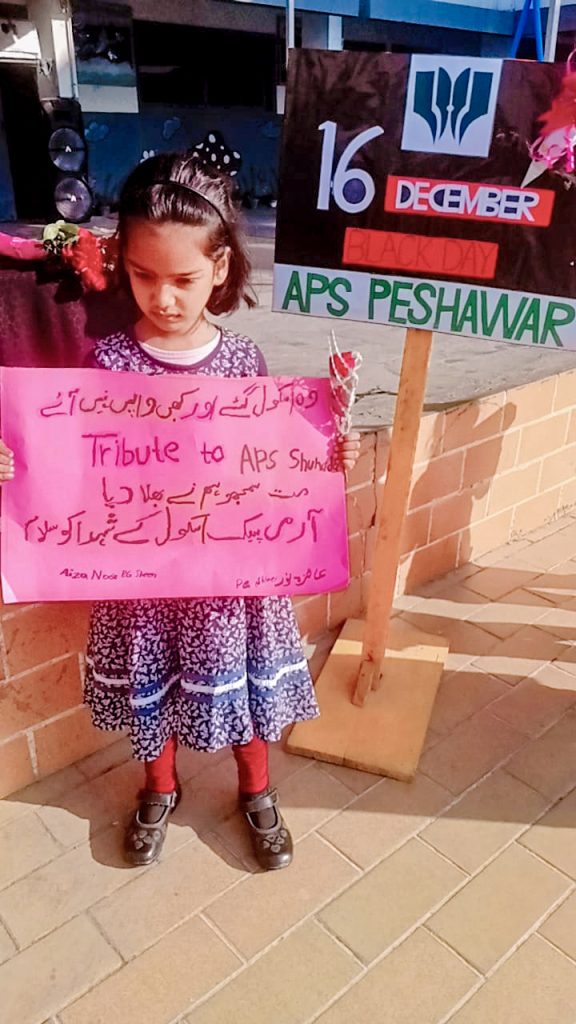 16
DECEMBER
BLACK DAY
APS PESHAWAR
وہ اسکول گئے اور کبھی واپس نہیں آئے
Tribute to APS Shuhda
مت سمجھو ہم نے بھلا دیا
آرمی پبلک اسکول کے شہدا کو سلام
Aiza Noor PG
نور PG